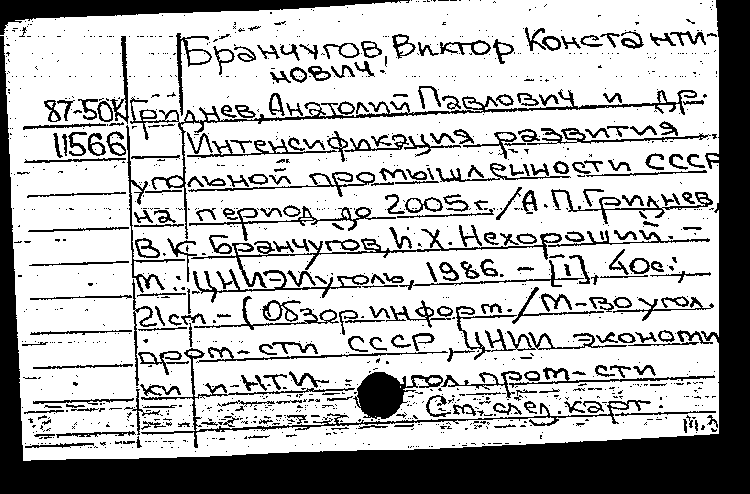 Бранчугов, Виктор Константи-
нович.
87-50К Гриднев, Анатолий Павлович и др.
11566 Интенсификация развития
угольной промышленности СССР
на период до 2005 г. / А.П. Гриднев,
В.К. Бранчугов, И.Х. Нехороший. –
М.: ЦНИЭИуголь, 1986. – [1], 40 с.;
21 см. – (Обзор. информ. / М-во угол.
пром-сти СССР, ЦНИИ экономи
ки и НТИ угол. пром-сти
См. след. карт.